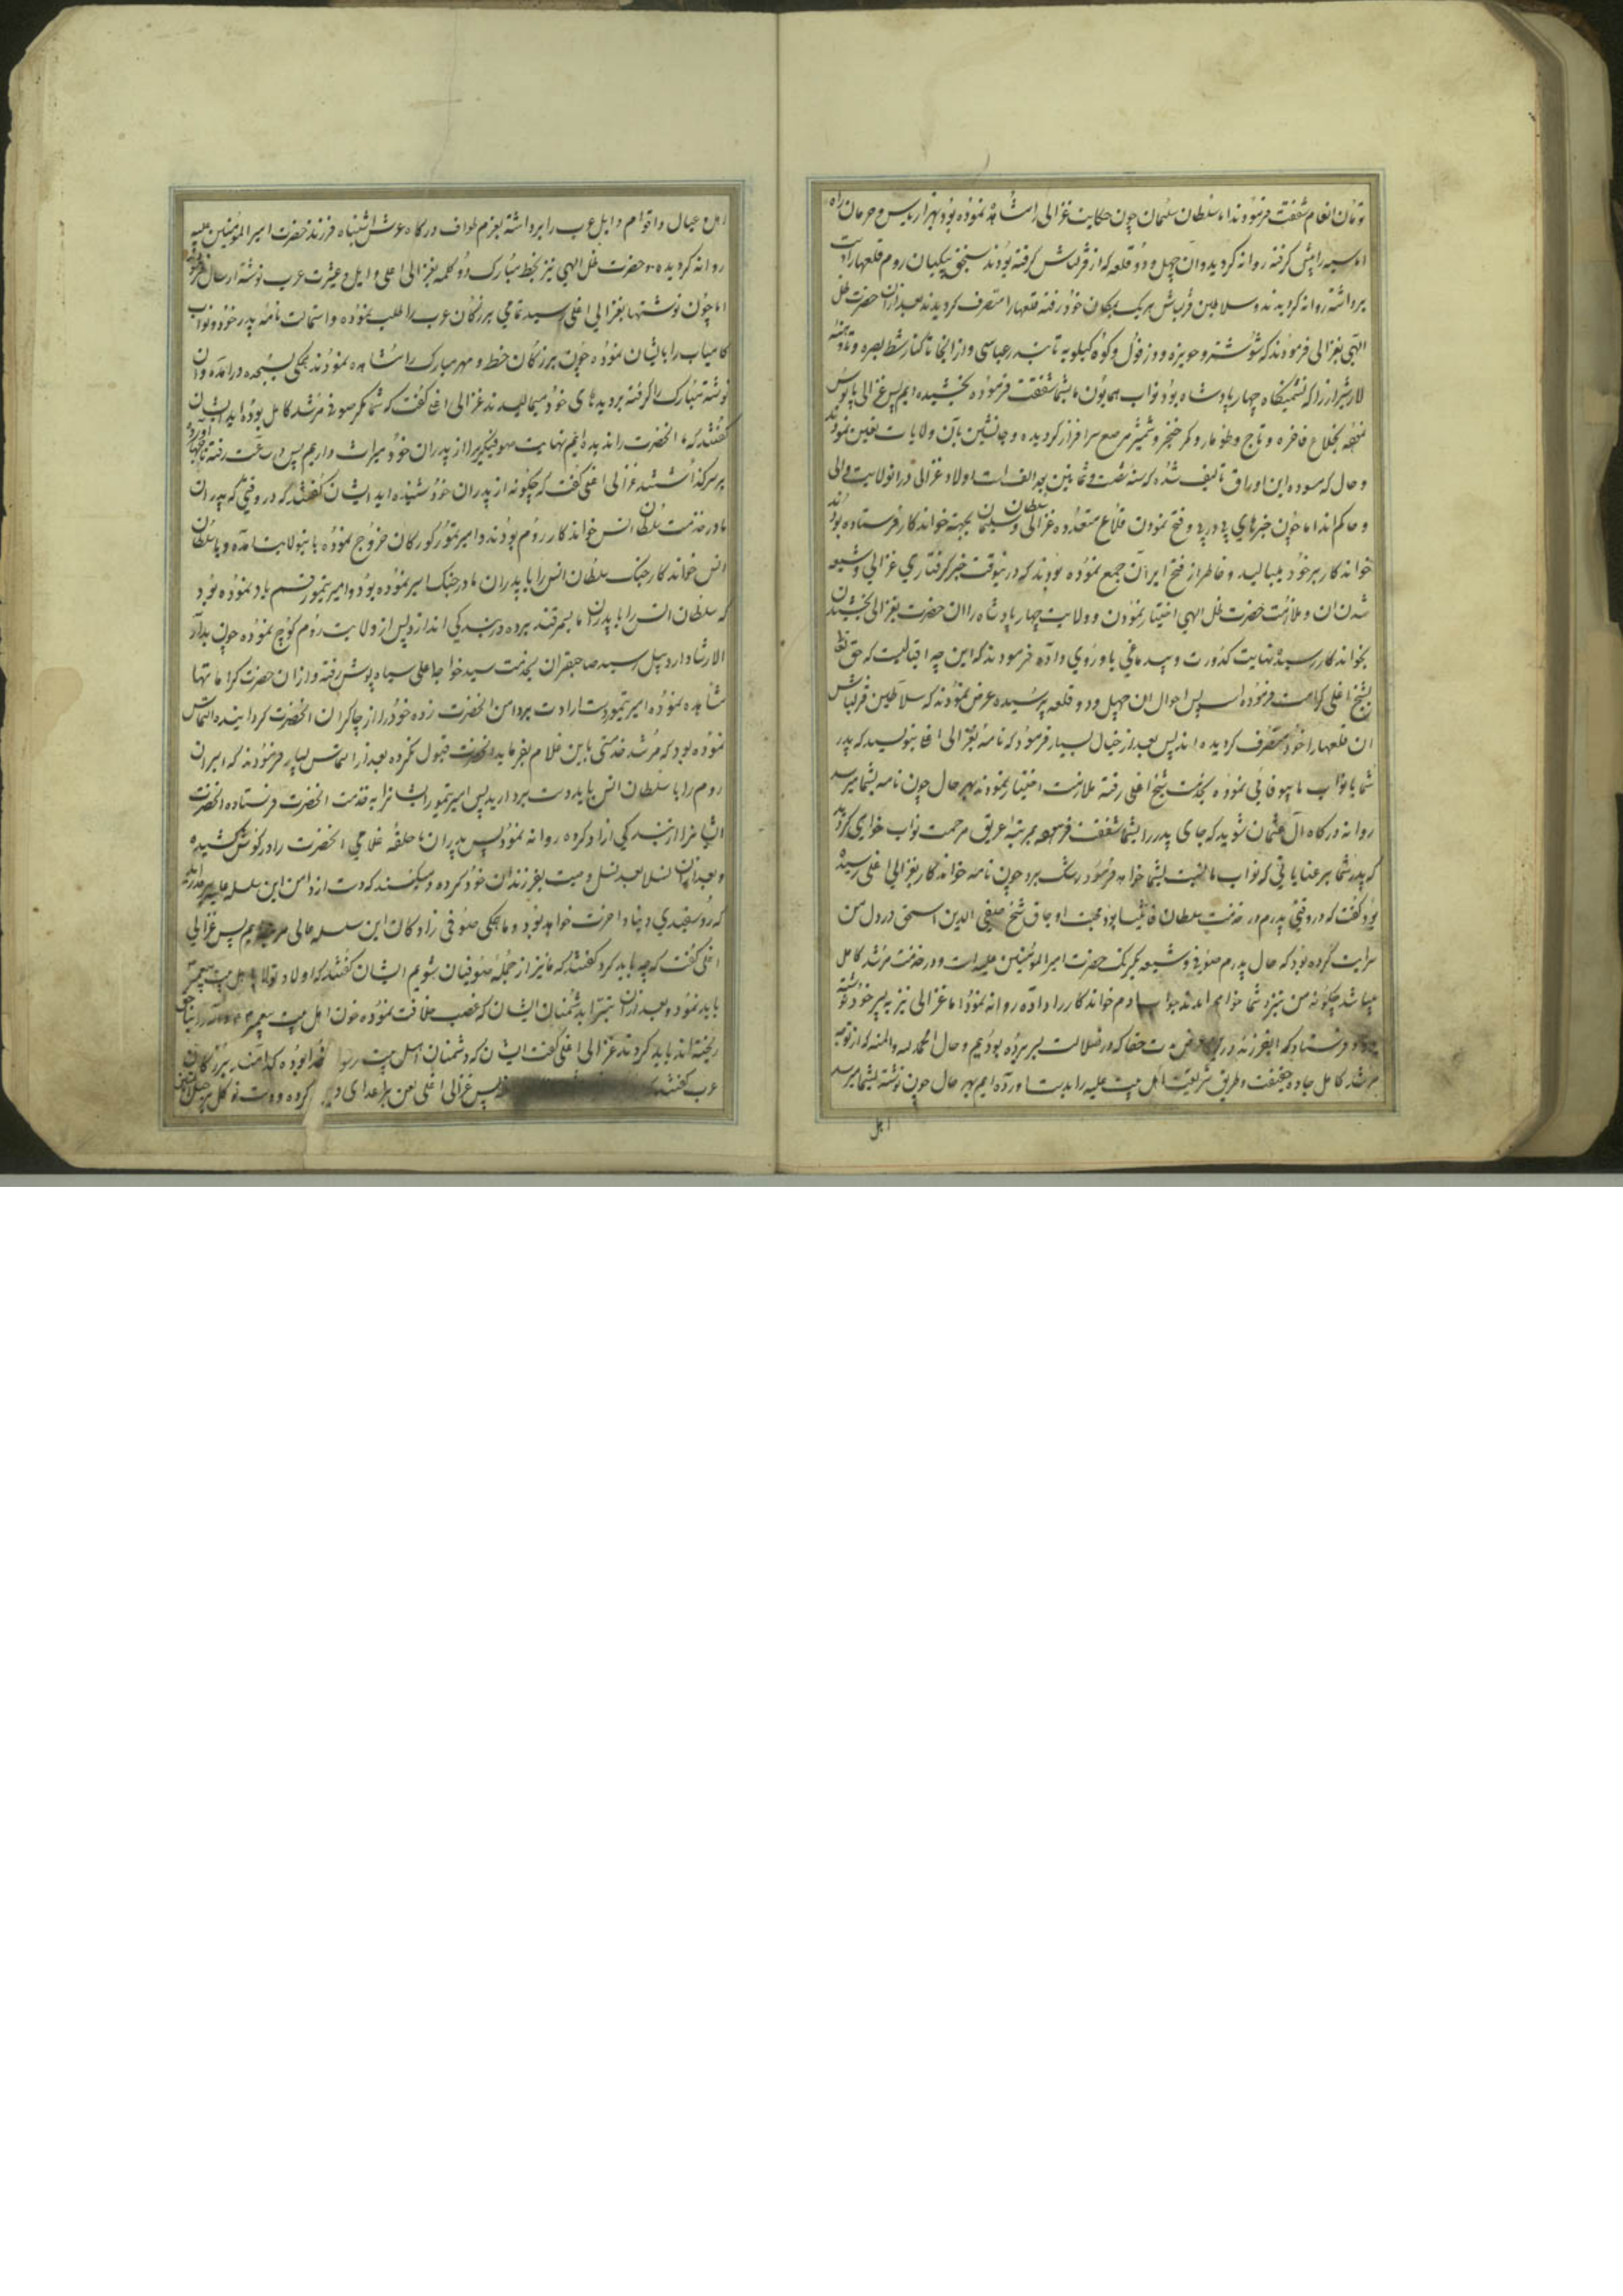 تومان انعام شفقت فرمودند اما سلطان سلیمان چون حکایت غزالی را مشاهده نموده بود بهزار یاس و حرمان راه
اماسیه را پیش گرفته روانه گردید و آن چهل و دو قلعه که از قزلباش گرفته بودند سنجق بیکیان روم قلعها را
برداشته روانه گردیدند و سلاطین قزلباش هر یک بمکان خود رفته قلعها را متصرف گردیدند بعد از آن حضرت ظل
الهی بغزالی فرمودند که شوشتر و حویزه و دزفول و کوه کیلویه تا بندر عباسی و از آنجا تا کنار شط بصره و
لار شیراز را که نشیمنگاه چهار پادشاه بود نواب همایون ما بشما شفقت فرموده بخشیده دیم پس غزالی پابوس
بخلاع فاخره و تاج و طومار و کمر خنجر و شمشیر مرصع سرافراز گردیده و جانشین بآن ولایات تعین نمودند
و حال که مسوده این اوراق تالیف شده که سنه ست و ثمانین بعد الف است اولاد غزالی در آن ولایت والی
و حاکم اند اما چون خبرهای پی در پی و فتح نمودن قلاع متعدده غزالی و سلطان سلیمان بجهة خواندکار فرستاده بودند
خواندکار بر خود میبالید و خاطر از فتح ایران جمع نموده بودند که در اینوقت خبر گرفتاری غزالی و شیعه
شدن آن و ملازمت حضرت ظل الهی اختیار نمودن و ولایت چهار پادشاه را آن حضرت بغزالی بخشیدن
بخواندکار رسید نهایت کدورت و بیدماغی باو روی داده فرمودند که این چه اقبالیست که حق تعالی
بشیخ اغلی کرامت فرموده است پس احوال آن چهل و دو قلعه پرسیده عرض نمودند که سلاطین قزلباش
آن قلعها را خود متصرف گردیده اند پس بعد از خیال بسیار فرمود که نامه بغزالی اغلی بنویسید که پدر
شما با نواب ما بیوفائی نموده بخدمت شیخ اغلی رفته ملازمت اختیار نمودند بهر حال چون نامه بشما میرسد
روانه درگاه آل عثمان شوید که جای پدر را بشما شفقت فرموده بمرتبه اعریق مرحمت نواب خواهی گردید
که پدر شما بر عنایاتی که نواب ما نسبت بشما خواهد فرمود رشک برد چون نامه خواندکار بغزالی اغلی رسیده
بود گفت که در وقتی پدرم در خدمت سلطان بود محبت اوجاق شیخ صفی الدین اسحق در دل من
سرایت کرده بود که حال پدرم صوفی و شیعه یکرنک حضرت امیرالمؤمنین علیه است و در خدمت مرشد کامل
میباشد چگونه من بنزد شما خواهم آمد خواندکار را داده روانه نمود اما غزالی نیز به پسر خود نوشته
فرستاد که ای فرزند در ضلالت بسر برده بودیم و حال الحمد لله و المنه که از توجه
مرشد کامل جاده حقیقت و طریق شریعت اهل بیت علیه را بدست آورده ایم بهر حال چون نوشته بشما میرسد
اهل
اهل و عیال و اقوام و ایل عرب را برداشته بعزم طواف درگاه عرش اشتباه فرزند حضرت امیرالمؤمنین علیه
روانه گردیده و حضرت ظل الهی نیز بخط مبارک دو کلمه بغزالی اغلی و ایل و عشرت عرب نوشته ارسال
اما چون نوشتها بغزالی اغلی رسید تمامی بزرگان عرب را طلب نموده و استمالت نامه پدر خود و نواب
کامیاب را بایشان نموده چون بزرگان خط و مهر مبارک را مشاهده نمودند همگی بسجده درآمده و آن
نوشته مبارک را گرفته بر دیدهای خود میمالیدند غزالی اغلی گفت که شما مگر صوفی مرشد کامل بوده اید ایشان
گفتند که ما آنحضرت را ندیده ایم نهایت صوفیگیری را از پدران خود میراث داریم پس در ساعت رفته
بر سر گذاشتند غزالی اغلی گفت که چگونه از پدران خود شنیده اید ایشان گفتند که در وقتی که پدران
ما در خدمت سلطان انس خواندکار روم بودند و امیر تیمور گورکان خروج نموده باینولایت آمده و با سلطان
انس خواندکار جنک سلطان انس را با پدران ما در جنک اسیر نموده بود و امیر تیمور قسم یاد نموده بود
که سلطان انس را با پدران ما بسمرقند برده در بندگی اندازد پس از ولایت روم کوچ نموده چون بدار
الارشاد اردبیل رسید صاحبقران بخدمت سید خواجه علی سیاه پوش رفته و از آن حضرت کرامتها
مشاهده نموده امیر تیمور دست ارادت بر دامن آنحضرت زده خود را از چاکران آنحضرت گردانیده التماس
نموده بود که مرشد خدمتی باین غلام بفرماید آنحضرت قبول نکرده بعد از التماس بسیار فرمودند که اسیران
روم را با سلطان انس باید دست بردارید پس امیر تیمور ایشانرا به خدمت آنحضرت فرستاده آنحضرت
ایشانرا از بندگی آزاد کرده روانه نمود پس پدران ما حلقه غلامی آنحضرت را در گوش کشیده
و بعد از آن نسلا بعد نسل وصیت بفرزندان خود کرده و میکنند که دست از دامن این سلسله علیه
که روسفیدی دنیا و آخرت خواهد بود و ما همگی صوفی زادگان این سلسله عالی پس غزالی
اغلی گفت که چه باید کرد گفتند که ما نیز از جمله صوفیان شویم ایشان گفتند که اولا تولا باهل بیت پیغمبر
باید نمود و بعد از آن تبرا بدشمنان ایشان که غصب خلافت نموده خون اهل بیت پیغمبر
ریخته اند باید کردند غزالی اغلی گفت ایشان که دشمنان اهل بیت رسول خدا بوده کدامند بزرگان
عرب گفتند پس غزالی اغلی لعن بر اعدای دین کرده و دست توکل